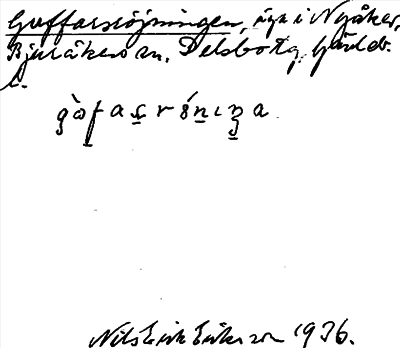 Guffarsröjningen, äga i Nyåker,
Bjuråkers sn. Delsbo tg. Gävleb.
l.
gòfasrónıŋa
Nils Erik Eriksson 1936.